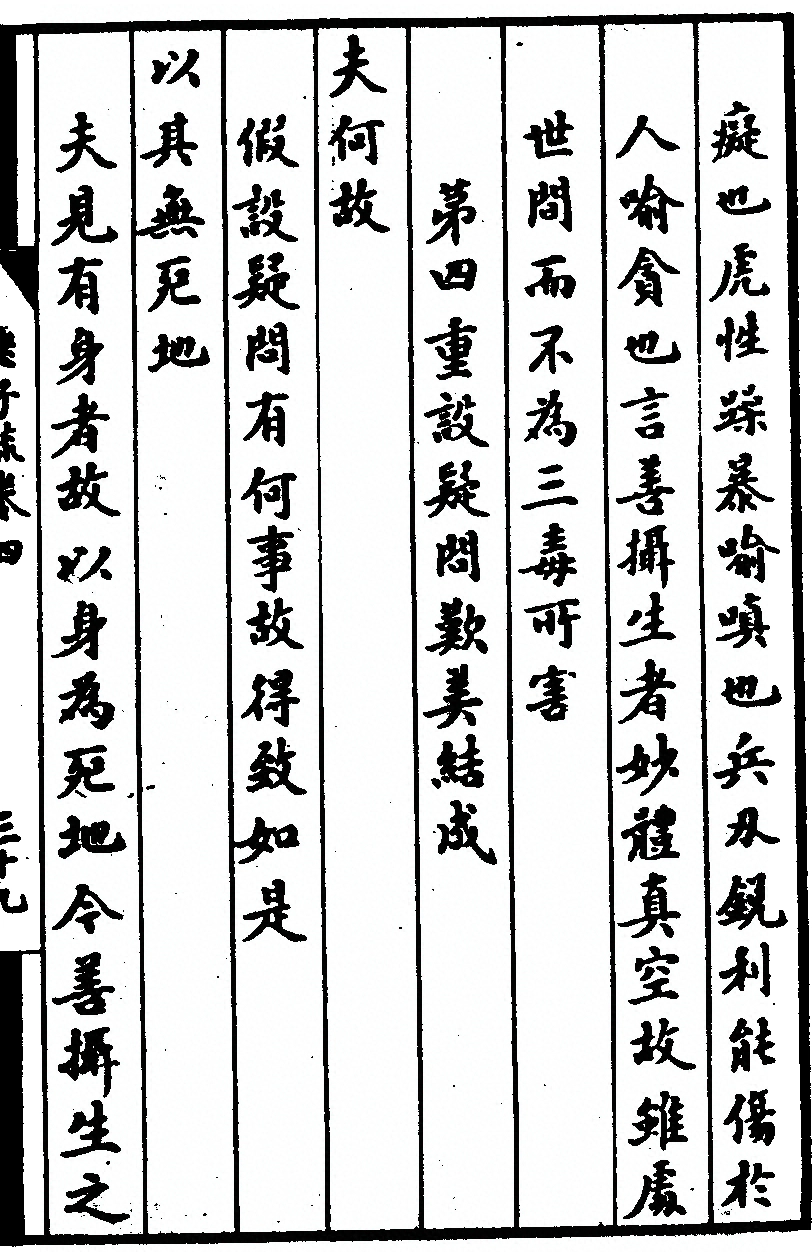 癡也虎性躁暴喻嗔也兵刃銳利能傷於
人喻貪也言善攝生者妙體真空故雖處
世間而不為三毒所害
第四重設疑問歎美結成
夫何故
假設疑問有何事故得致如是
以其無死地
夫見有身者故以身為死地今善攝生之
子疏卷四
三十九